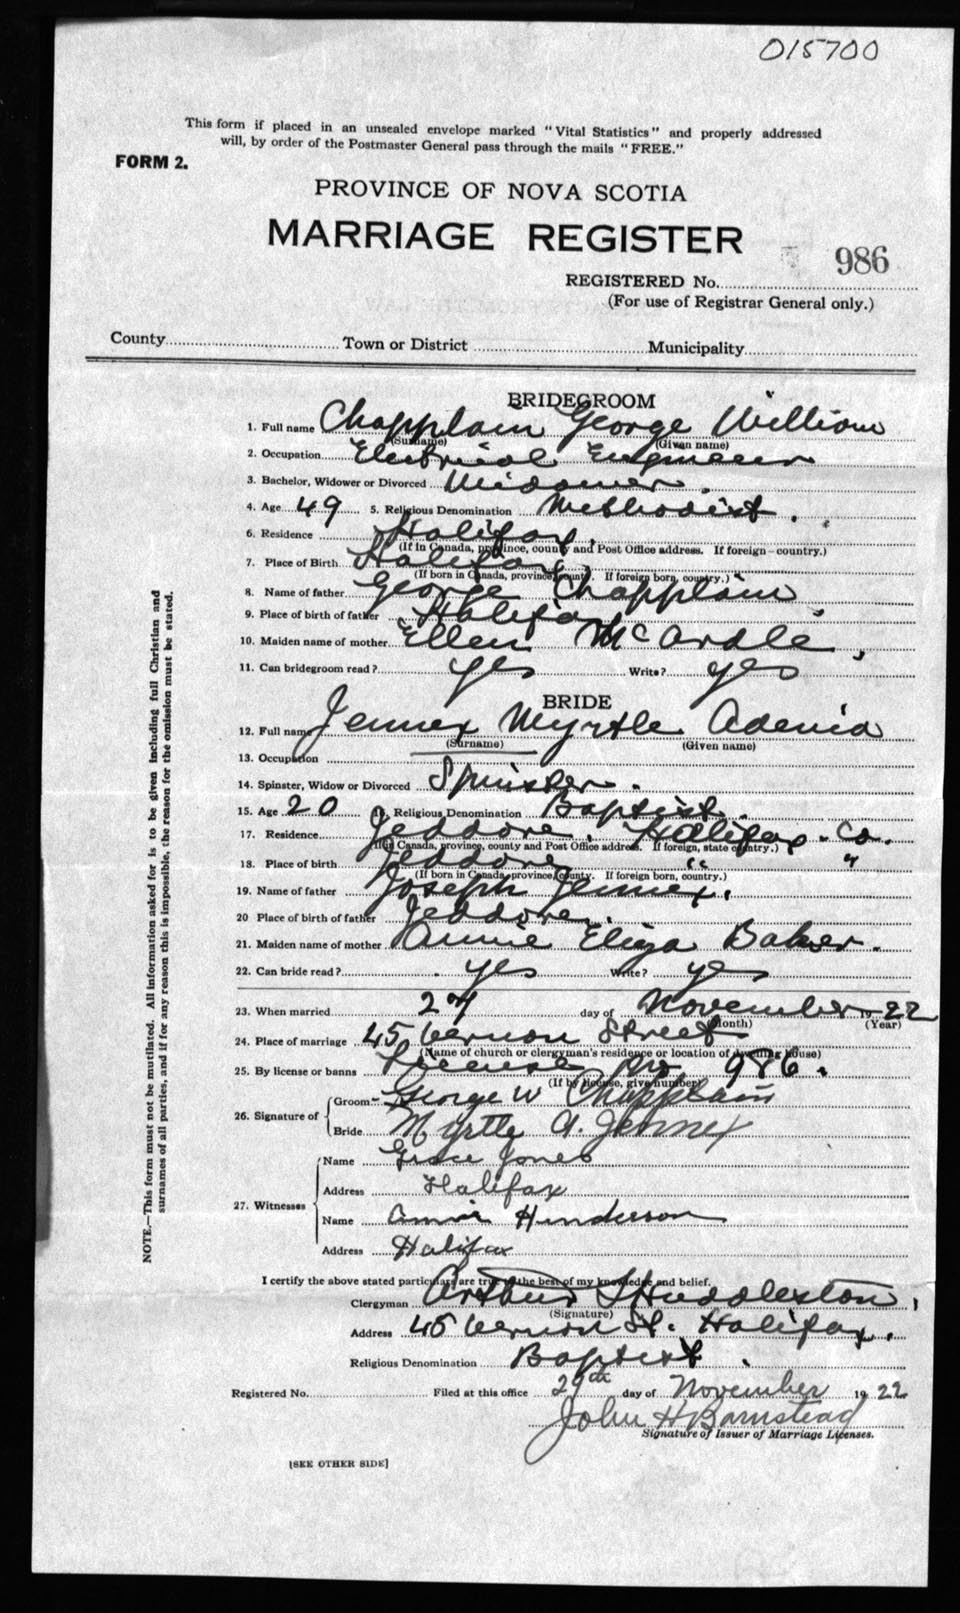 015700
This form if placed in an unsealed envelope marked "Vital Statistics" and properly addressed
will, by order of the Postmaster General pass through the mails "FREE."
FORM 2.
PROVINCE OF NOVA SCOTIA
MARRIAGE REGISTER
986
REGISTERED No.
(For use of Registrar General only.)
County Town or District Municipality
BRIDEGROOM
1. Full name Chapplain George William
(Surname) (Given name)
2. Occupation Electrical Engineer
3. Bachelor, Widower or Divorced Widower.
4. Age 49 5. Religious Denomination Methodist.
6. Residence Halifax.
(If in Canada, province, county and Post Office address. If foreign—country.)
7. Place of Birth Halifax
(If born in Canada, province, county. If foreign born, country.)
8. Name of father George Chapplain
9. Place of birth of father Halifax
10. Maiden name of mother Ellen McArdle,
11. Can bridegroom read? yes Write? yes
BRIDE
12. Full name Jennex Myrtle Adenia
(Surname) (Given name)
13. Occupation
14. Spinster, Widow or Divorced Spinster.
15. Age 20 16. Religious Denomination Baptist.
17. Residence Jeddore, Halifax. Co.
(If in Canada, province, county and Post Office address. If foreign, state country.)
18. Place of birth Jeddore " "
(If born in Canada, province, county. If foreign born, country.)
19. Name of father Joseph Jennex.
20 Place of birth of father Jeddore.
21. Maiden name of mother Annie Eliza Baker.
22. Can bride read? yes Write? yes
23. When married 24 day of November 1922
(Month) (Year)
24. Place of marriage 45 Vernon Street
(Name of church or clergyman's residence or location of dwelling house)
25. By license or banns License No 986.
(If by license, give number)
26. Signature of Groom George W Chapplain
Bride Myrtle A. Jennex
27. Witnesses Name Grace Jones
Address Halifax
Name Annie Henderson
Address Halifax
I certify the above stated particulars are true to the best of my knowledge and belief.
Clergyman Arthur S Huddleston,
(Signature)
Address 45 Vernon St. Halifax.
Religious Denomination Baptist.
Registered No. Filed at this office 29th day of November 1922
John H Barnstead
Signature of Issuer of Marriage Licenses.
[SEE OTHER SIDE]
NOTE.—This form must not be mutilated. All information asked for is to be given including full Christian and
surnames of all parties, and if for any reason this is impossible, the reason for the omission must be stated.